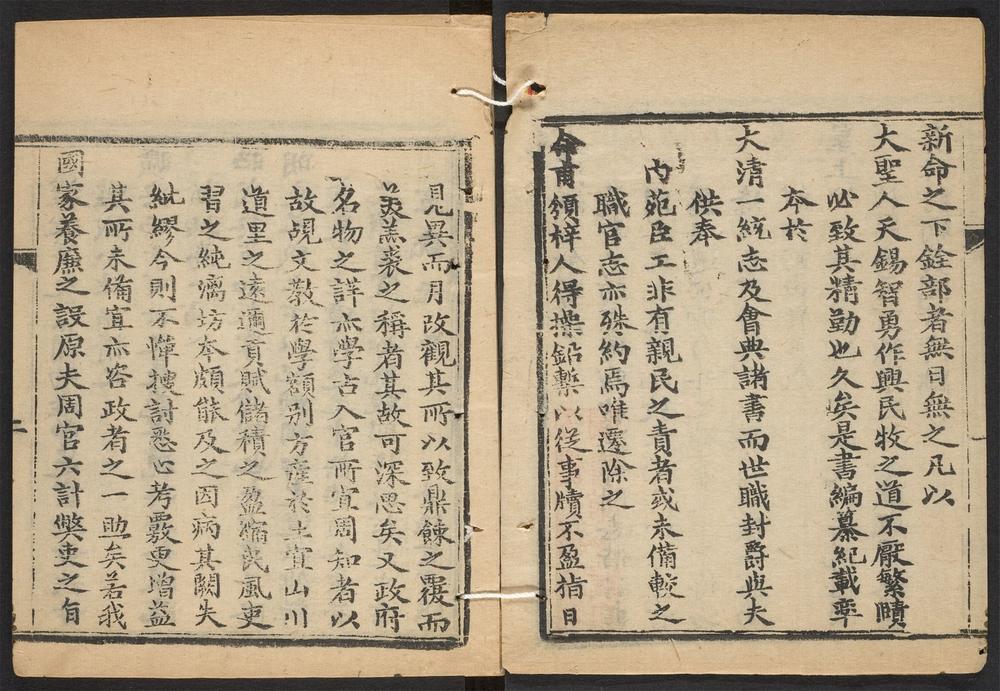 新命之下銓部者無日無之凡以
大聖人天錫智勇作興民牧之道不厭繁賾
必致其精勤也久矣是書編纂紀載率
本於
大清一統志及會典諸書而世職封爵與夫
供奉
內苑臣工非有親民之責者或未備較之
職官志亦殊約焉唯遷除之
命甫頒梓人得操鉛槧以從事牘不盈指日
見異而月改觀其所以致鼎餗之覆而
羔裘之稱者其故可深思矣又政府
名物之詳亦學古入官所宜周知者以
故覘文教於學額別方產於土宜山川
道里之遠邇貢賦儲積之盈縮民風吏
習之純漓坊本頗能及之因病其闕失
紕繆今則不憚搜討悉心考覈更增益
其所未備宜亦咨政者之一助矣若我
國家養廉之設原夫周官六計獘吏之旨
二